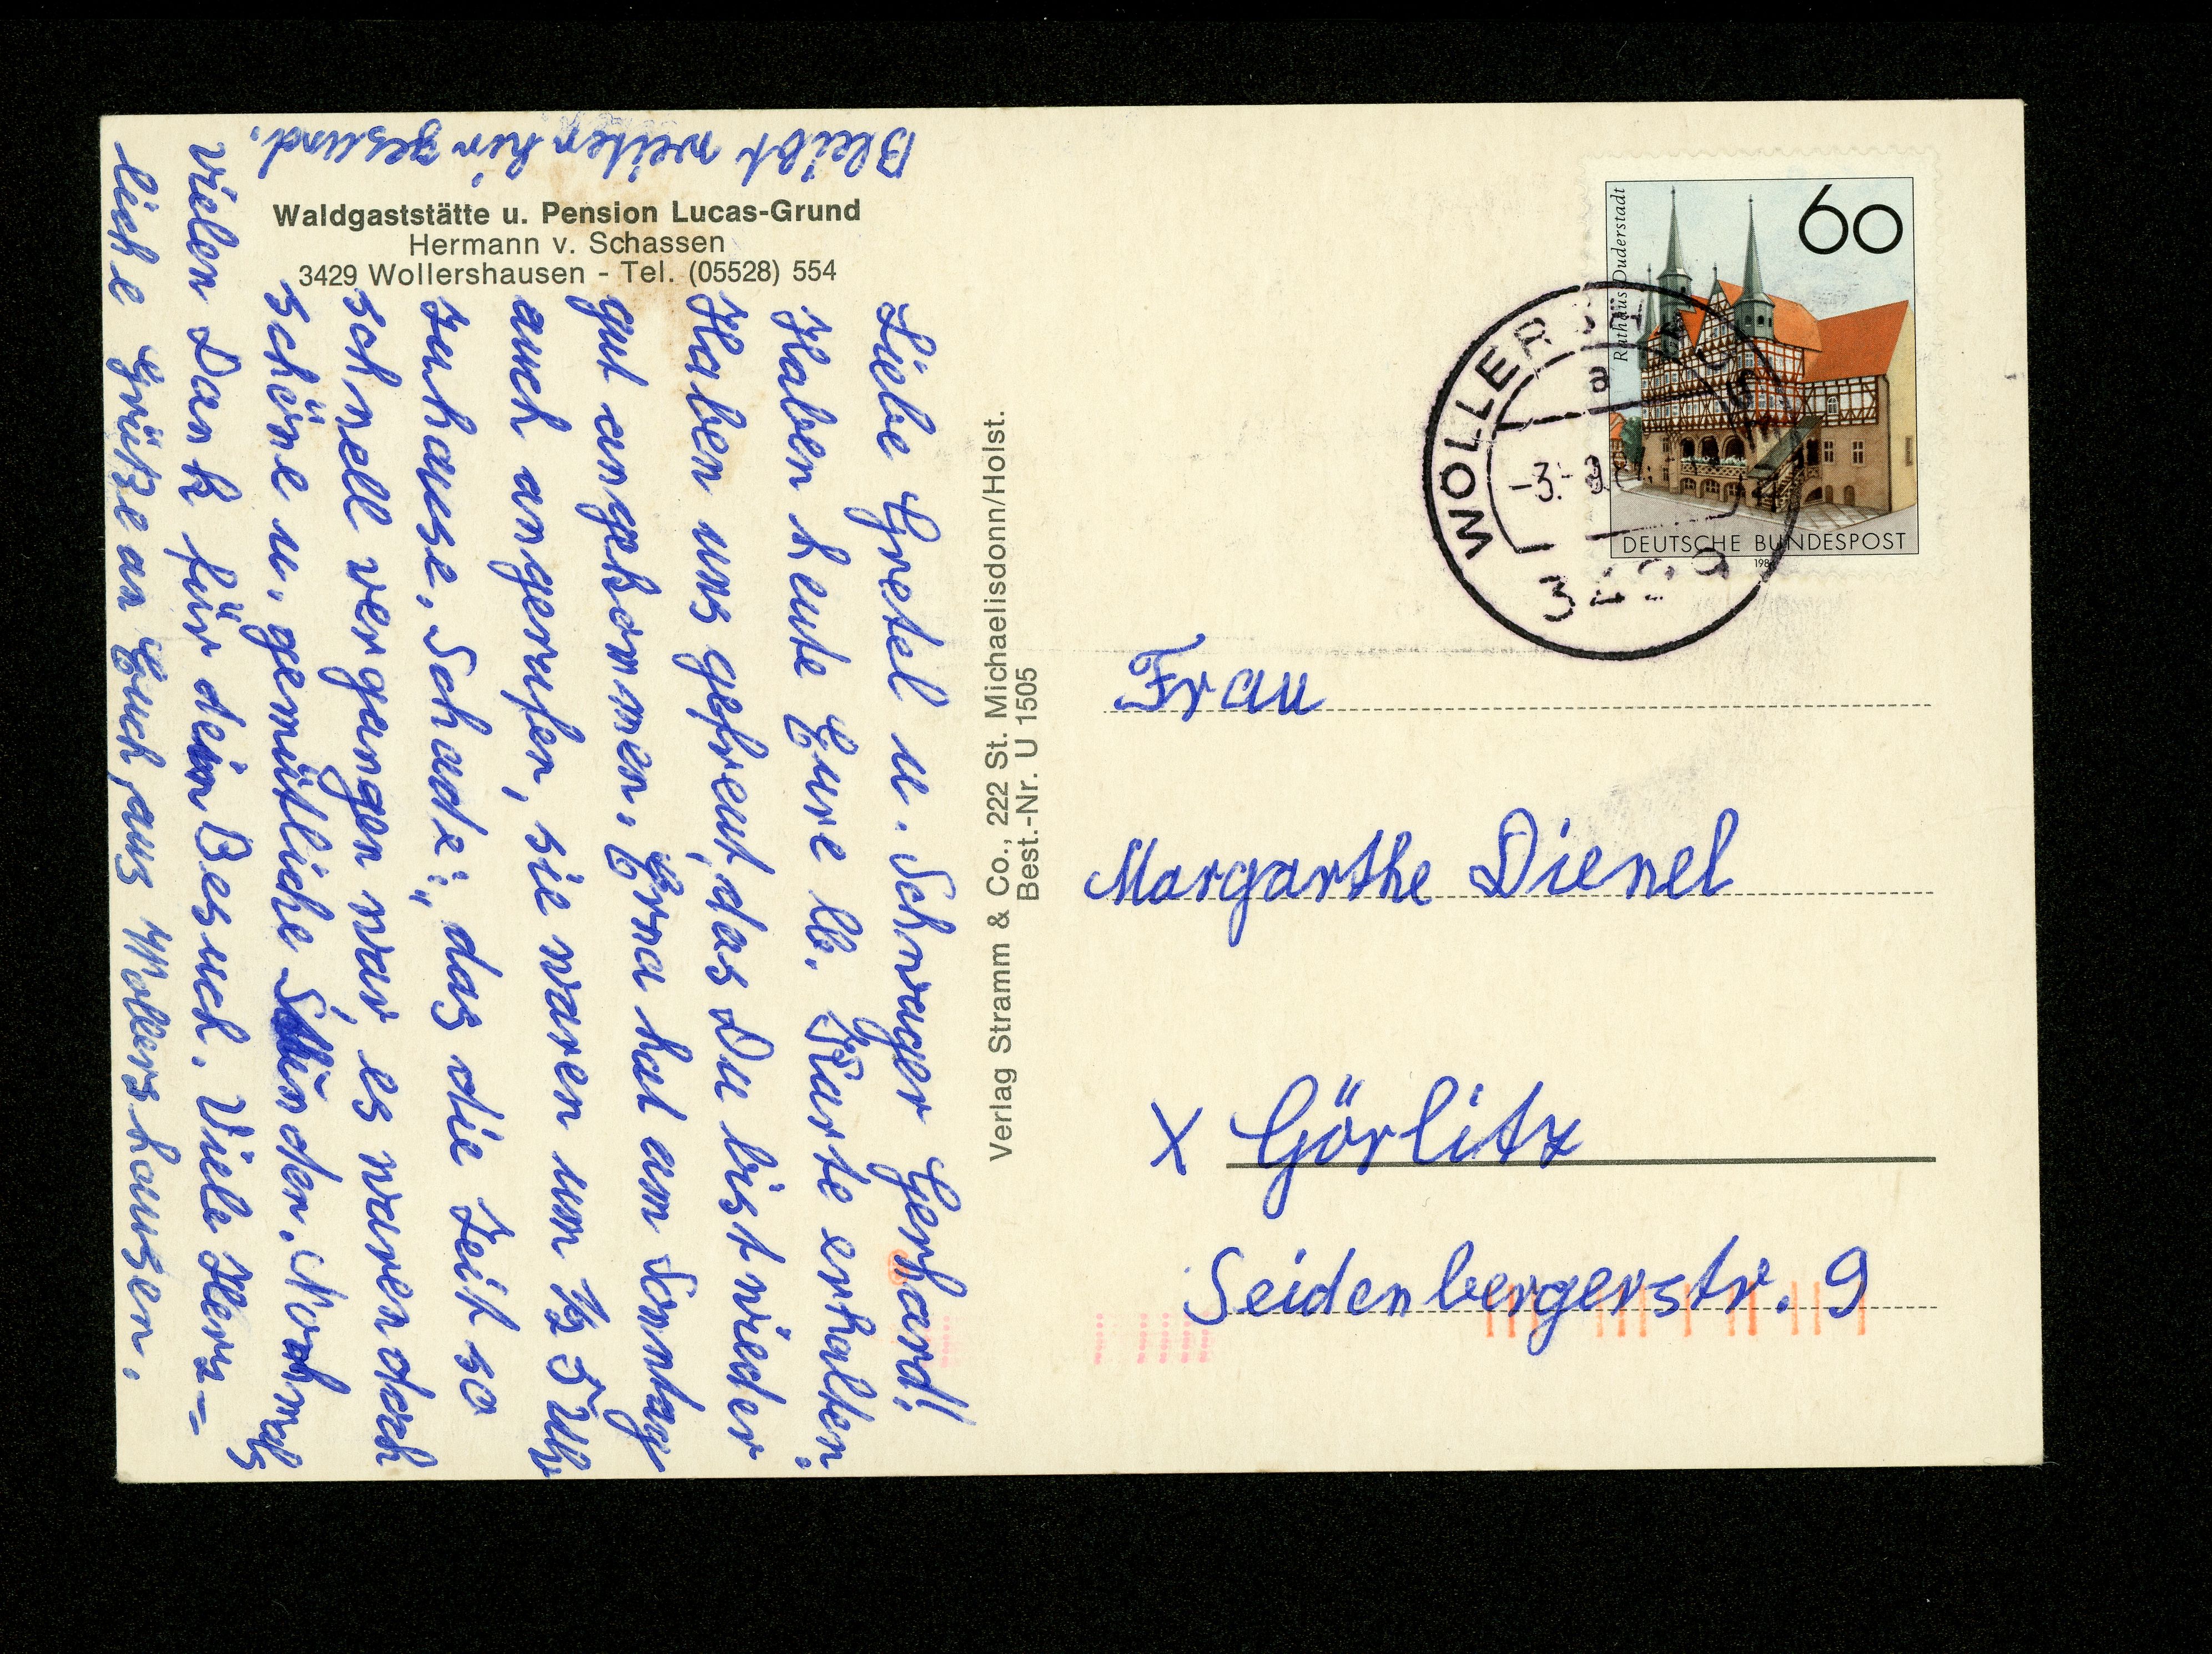 Waldgaststätte u. Pension Lucas-Grund
Hermann v. Schassen
3429 Wollershausen - Tel. (05528) 554
Liebe Gretel u. Schwager Gerhard!
Haben heute Eure lb. Karte erhalten.
Haben uns gefreut, das Du bist wieder
gut angekommen. Erna hat am Sonntag
auch angerufen, sie waren um ½ 5 Uhr
zuhause. Schade;, das die Zeit so
schnell vergangen war, es waren doch
schöne u. gemütliche Stunden. Nochmals
vielen Dank für dein Besuch. Viele Herz=
liche Grüße an Euch, aus Wollershausen.
Bleibt weiter hin gesund.
Verlag Stramm & Co., 222 St. Michaelisdonn/Holst.
Best.-Nr. U 1505
60
Rathaus Duderstadt
DEUTSCHE BUNDESPOST
WOLLERSHAUSEN
a
-3.-
3429
Frau
Margarthe Dienel
X Görlitz
Seidenbergerstr. 9